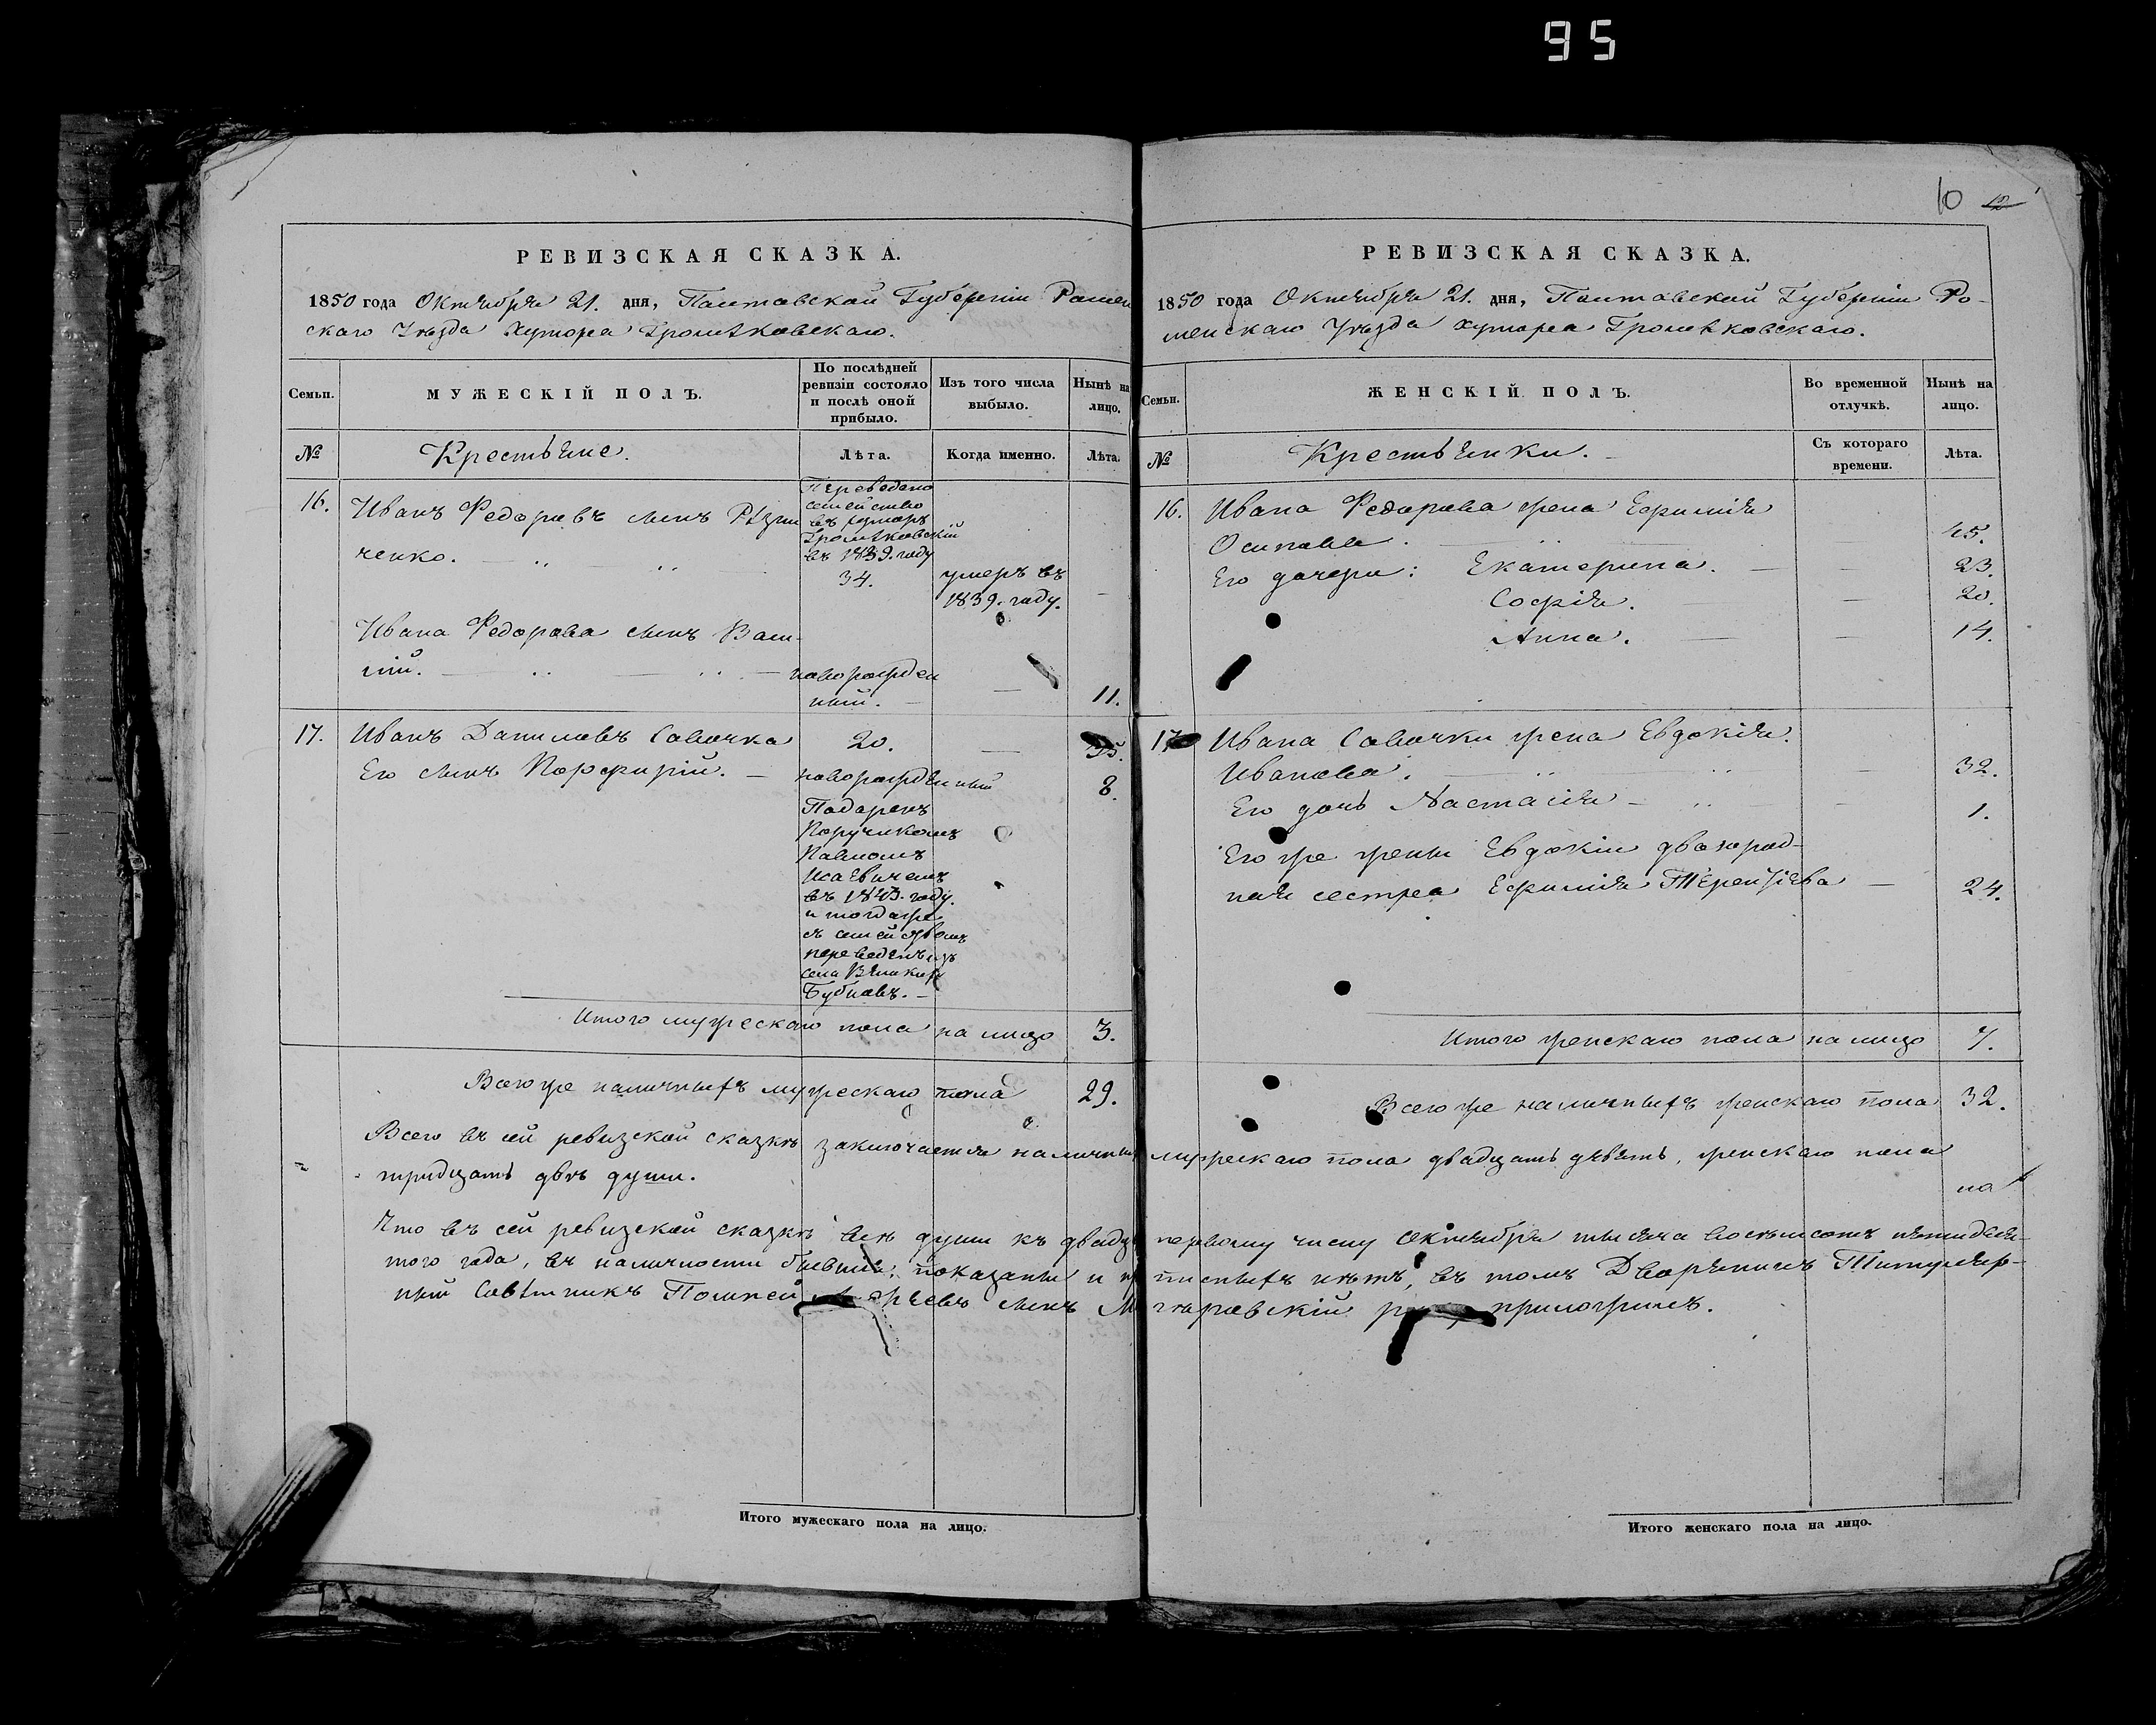 95
10 12
РЕВИЗСКАЯ СКАЗКА.
1850 года Октября 21. дня, Полтавской Губерніи Ромен
скаго Уѣзда хутора Громѣковскаго.
Семьи.
МУЖЕСКІЙ ПОЛЪ.
По послѣдней
ревизіи состояло
и послѣ оной
прибыло.
Изъ того числа
выбыло.
Нынѣ на
лицо.
№
Крестьяне.
Лѣта.
Когда именно.
Лѣта.
16.
Иванъ Федоровъ сынъ
ченко.
Переведено
семейство
въ хуторъ
Громѣковскій
въ 1839. году
34.
умеръ въ
1839. году.
Ивана Федорова сынъ Васи-
лій.
новорожден
ный.
11.
17.
Иванъ Даниловъ Савочка
20.
35.
Его сынъ Порфирій.
новорожденный
8.
Подаренъ
Поручикомъ
Павломъ
Исаевичемъ
въ 1843. году.
и тогда же
съ семействомъ
переведенъ изъ
села Великихъ
Бубновъ.
Итого мужескаго пола на лицо 3.
Всего же наличныхъ мужескаго пола 29.
РЕВИЗСКАЯ СКАЗКА.
1850 года Октября 21. дня, Полтавской Губерніи Ро-
менскаго Уѣзда хутора Громѣковскаго.
Семьи.
ЖЕНСКІЙ ПОЛЪ.
Во временной
отлучкѣ.
Нынѣ на
лицо.
№
Крестьянки.
Съ котораго
времени.
Лѣта.
16.
Ивана Федорова жена Ефимія
Осипова. 45.
Его дочери: Екатерина. 23.
Софія. 20.
Анна. 14.
17.
Ивана Савочки жена Евдокія
Иванова. 32.
Его дочь Настасія 1.
Его же жены Евдокіи двоюрод-
ная сестра Ефимія Терентіева 24.
Итого женскаго пола на лицо 7.
Всего же наличныхъ женскаго пола 32.
Всего въ сей ревизской сказкѣ заключается наличныхъ мужескаго пола двадцать девять, женскаго пола
тридцать двѣ души.
на
Что въ сей ревизской сказкѣ всѣ души къ двадцать первому числу Октября тысяча восемьсотъ пятидеся-
того года, въ наличности бывшія, показаны и пр писныхъ нѣтъ, въ томъ Дворянинъ Титуляр-
ный Совѣтникъ сынъ приложилъ.
Итого мужескаго пола на лицо.
Итого женскаго пола на лицо.